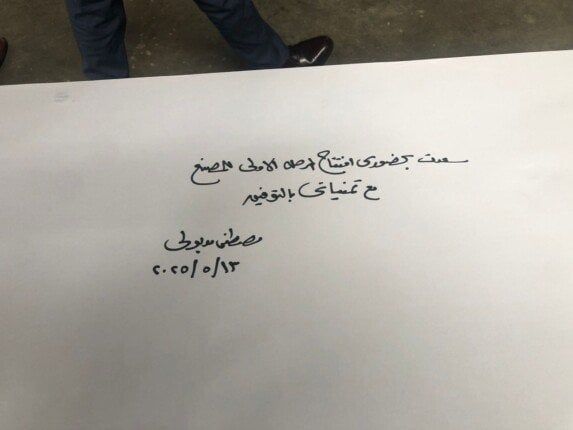 سعدت بحضوري افتتاح المرحلة الاولى للمصنع
مع تمنياتي بالتوفيق
مصطفى مدبولي
٢٠٢٥/٥/١٣